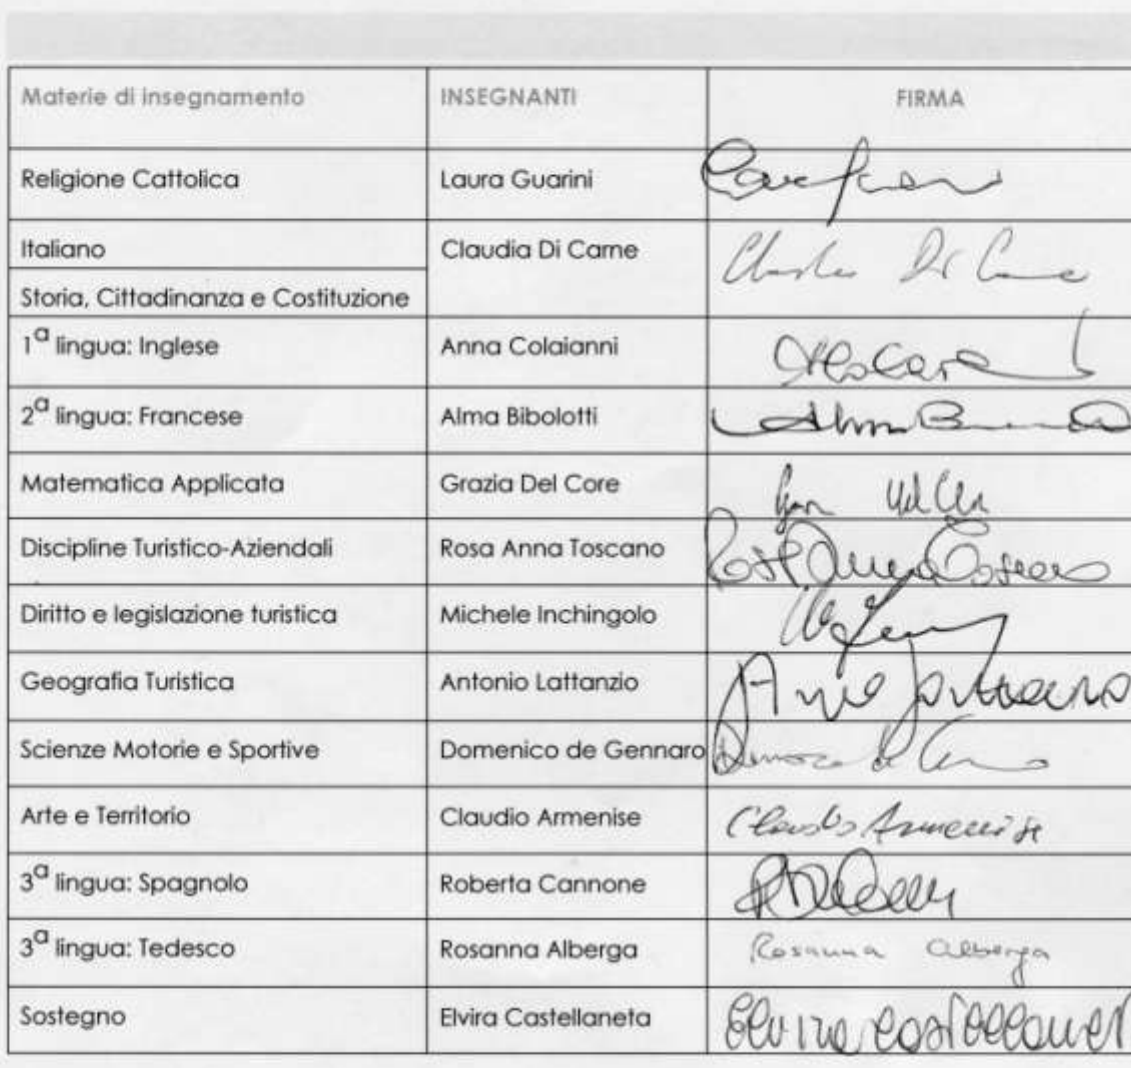 Materie di insegnamento INSEGNANTI FIRMA
Religione Cattolica Laura Guarini
Italiano Claudia Di Carne Claudia Di Carne
Storia, Cittadinanza e Costituzione
1a lingua: Inglese Anna Colaianni
2a lingua: Francese Alma Bibolotti Alma
Matematica Applicata Grazia Del Core
Discipline Turistico-Aziendali Rosa Anna Toscano Rosa Anna Toscano
Diritto e legislazione turistica Michele Inchingolo
Geografia Turistica Antonio Lattanzio
Scienze Motorie e Sportive Domenico de Gennaro
Arte e Territorio Claudio Armenise Claudio Armenise
3a lingua: Spagnolo Roberta Cannone
3a lingua: Tedesco Rosanna Alberga Rosanna Alberga
Sostegno Elvira Castellaneta Elvira Castellanet